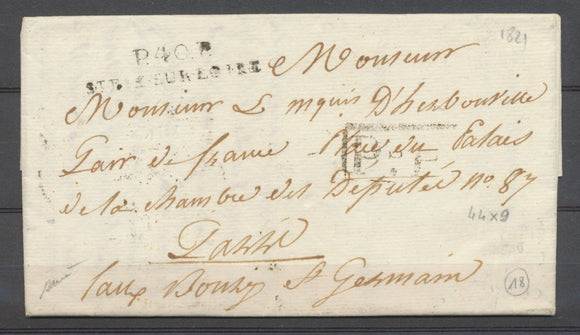 1821
P.40.P
STE SUR LOIRE
Monsieur
Monsieur Le mquis D'herbouville
Pair de france Rue du Palais
de la chambre des Députés no 87
Paris
faux Bourg St Germain
P. P.
44x9
18